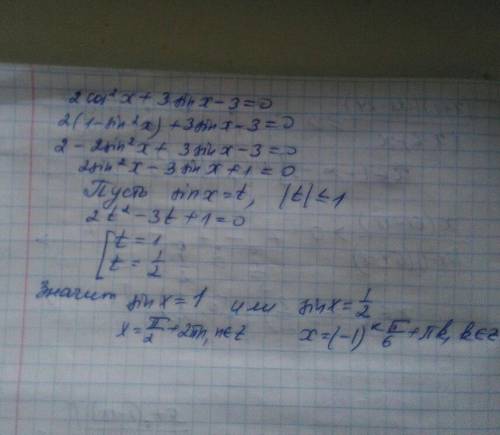 2cos²x + 3sinx - 3 = 0
2(1 - sin²x) + 3sinx - 3 = 0
2 - 2sin²x + 3sinx - 3 = 0
2sin²x - 3sinx + 1 = 0
Пусть sinx = t, |t| ≤ 1
2t² - 3t + 1 = 0
[t = 1
t = 1/2
Значит sinx = 1 или sinx = 1/2
x = π/2 + 2πn, n∈z x = (-1)^k π/6 + πk, k∈z